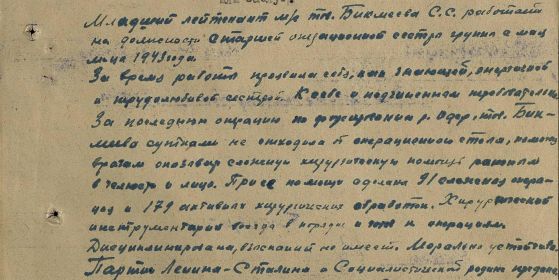 Младший лейтенант м/с тов. Бикмеева С.С. работает
на должности старшей операционной сестры группы с мая
м-ца 1943 года.
За время работы проявила себя, как знающей, энергичной
и трудолюбивой сестрой. К себе и подчиненным требовательна.
За последнюю операцию по форсированию р. Одер, тов. Бик-
меева сутками не отходила от операционного стола, помогая
врачам оказывать сложную хирургическую помощь раненым
в челюсть и лицо. При ее помощи сделано 91 сложная опера-
ция и 179 активных хирургических обработок. Хирургический
инструментарий всегда в порядке и готов к операциям.
Дисциплинирована, взысканий не имеет. Морально устойчива.
Партии Ленина-Сталина и Социалистической родине предана